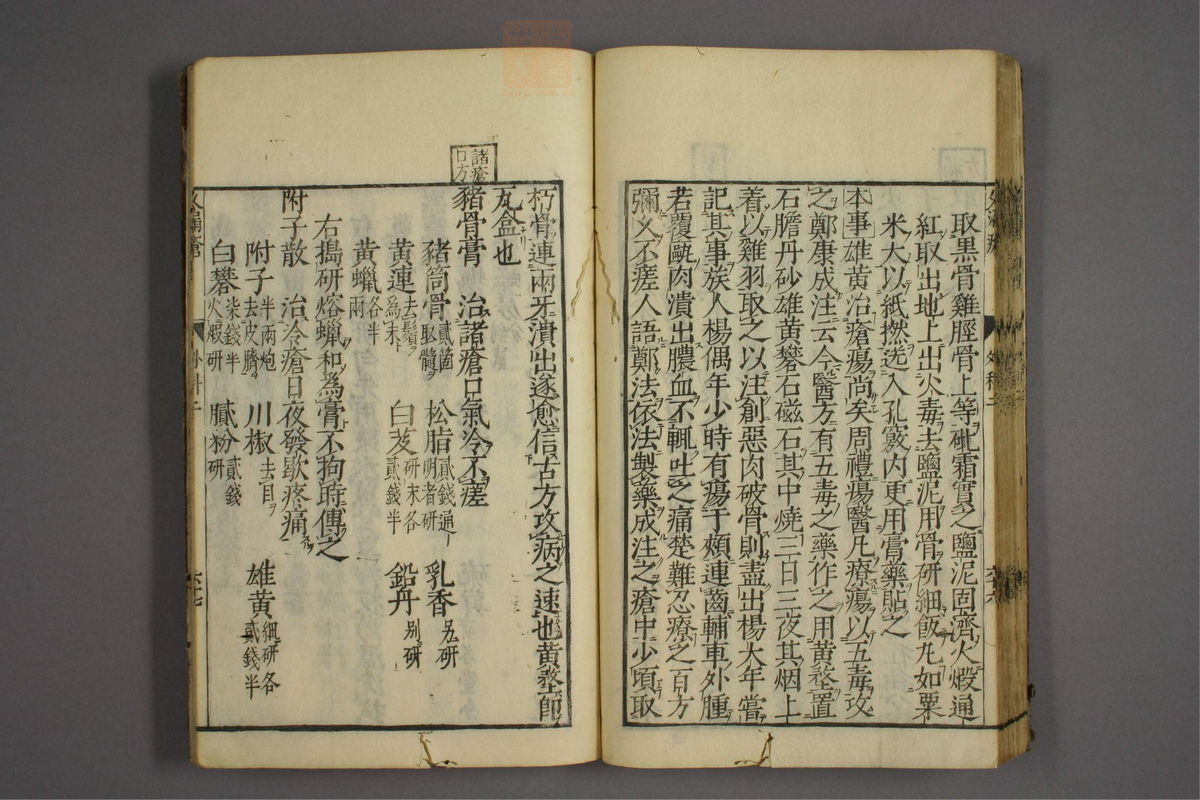 取黒骨雞脛骨上等砒霜實之鹽泥固濟火煅通
紅取出地上出火毒去鹽泥用骨研細飯丸如粟
米大以紙撚送入孔竅内更用膏藥貼之
本事雄黄治瘡瘍尚矣周禮瘍醫凡療瘍以五毒攻
之鄭康成注云今醫方有五毒之藥作之用黄堥置
石膽丹砂雄黄礬石磁石其中燒三日三夜其烟上
着以雞羽取之以注創惡肉破骨則盡出楊大年嘗
記其事族人楊偶年少時有瘍于頰連齒輔車外腫
若覆甌肉潰出膿血不輒吐之痛楚難忍療之百方
彌久不瘥人語鄭法依法製藥成注之瘡中少頃取
久漏瘡
外科二
六十六
朽骨連兩牙潰出遂愈信古方攻病之速也黄堥即
瓦盒也
諸瘡
口方
豬骨膏 治諸瘡口氣冷不瘥
豬筒骨 貳箇取髓 松脂 貳錢通明者研 乳香 另研
黄連 去鬚為末 白芨 研末各貳錢半 鉛丹 别研
黄蠟 各半兩
右搗研熔蠟和為膏不拘時傅之
附子散 治冷瘡日夜發歇疼痛
附子 半兩炮去皮臍 川椒 去目 雄黄 細研各貳錢半
白礬 柒錢半火煆研 膩粉 貳錢研
久漏瘡
外科二
六十七